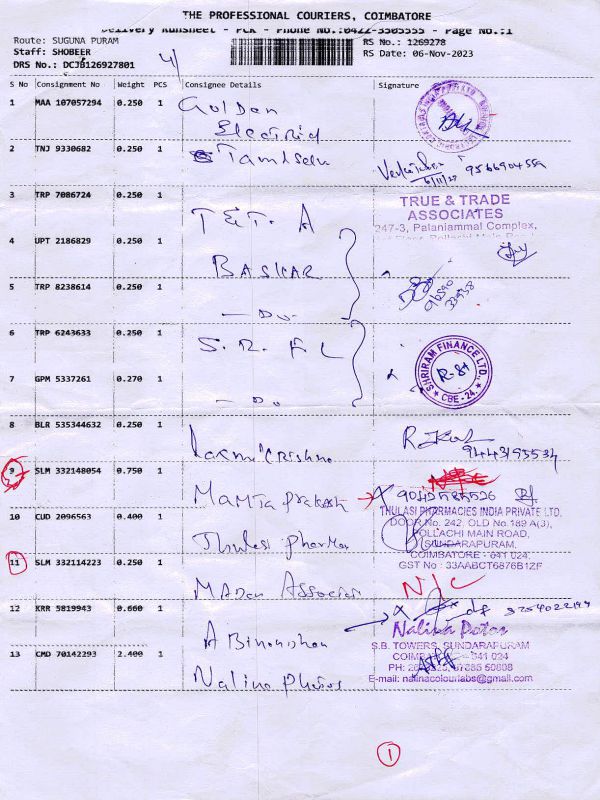 THE PROFESSIONAL COURIERS, COIMBATORE
Delivery Runsheet - PCK - Phone No.:0422-3505555 - Page No.:1
Route: SUGUNA PURAM
Staff: SHOBEER
DRS No.: DCJB126927801
RS No.: 1269278
RS Date: 06-Nov-2023
S No Consignment No Weight PCS Consignee Details Signature
1 MAA 107057294 0.250 1 Golden
Electrical
2 TNJ 9330682 0.250 1 Tamilselu
6/11/23 9566904559
3 TRP 7086724 0.250 1 T E T. A
TRUE & TRADE
ASSOCIATES
247-3, Palaniammal Complex,
4 UPT 2186829 0.250 1 BASKAR
5 TRP 8238614 0.250 1 - Do
6 TRP 6243633 0.250 1 S. R. F L
7 GPM 5337261 0.270 1 - Do
SHRIRAM FINANCE LTD.,
CBE-24
8 BLR 535344632 0.250 1 Laxmi Crishna
9443193534
9 SLM 332148054 0.750 1 Mamta prakash
9042585526
10 CUD 2096563 0.400 1 Thulasi pharma
THULASI PHARMACIES INDIA PRIVATE LTD.
DOOR No. 242, OLD No.189 A(3),
POLLACHI MAIN ROAD,
SUNDARAPURAM,
COIMBATORE - 641 024.
GST No : 33AABCT6876B1ZF
11 SLM 332114223 0.250 1 Madan Associas
N/C
12 KRR 5819943 0.660 1
13 CMD 70142293 2.400 1 Nalina Photos
Nalina Potos
S.B. TOWERS, SUNDARAPURAM
COIMBATORE - 641 024
E-mail: nalinacolourlabs@gmail.com
1